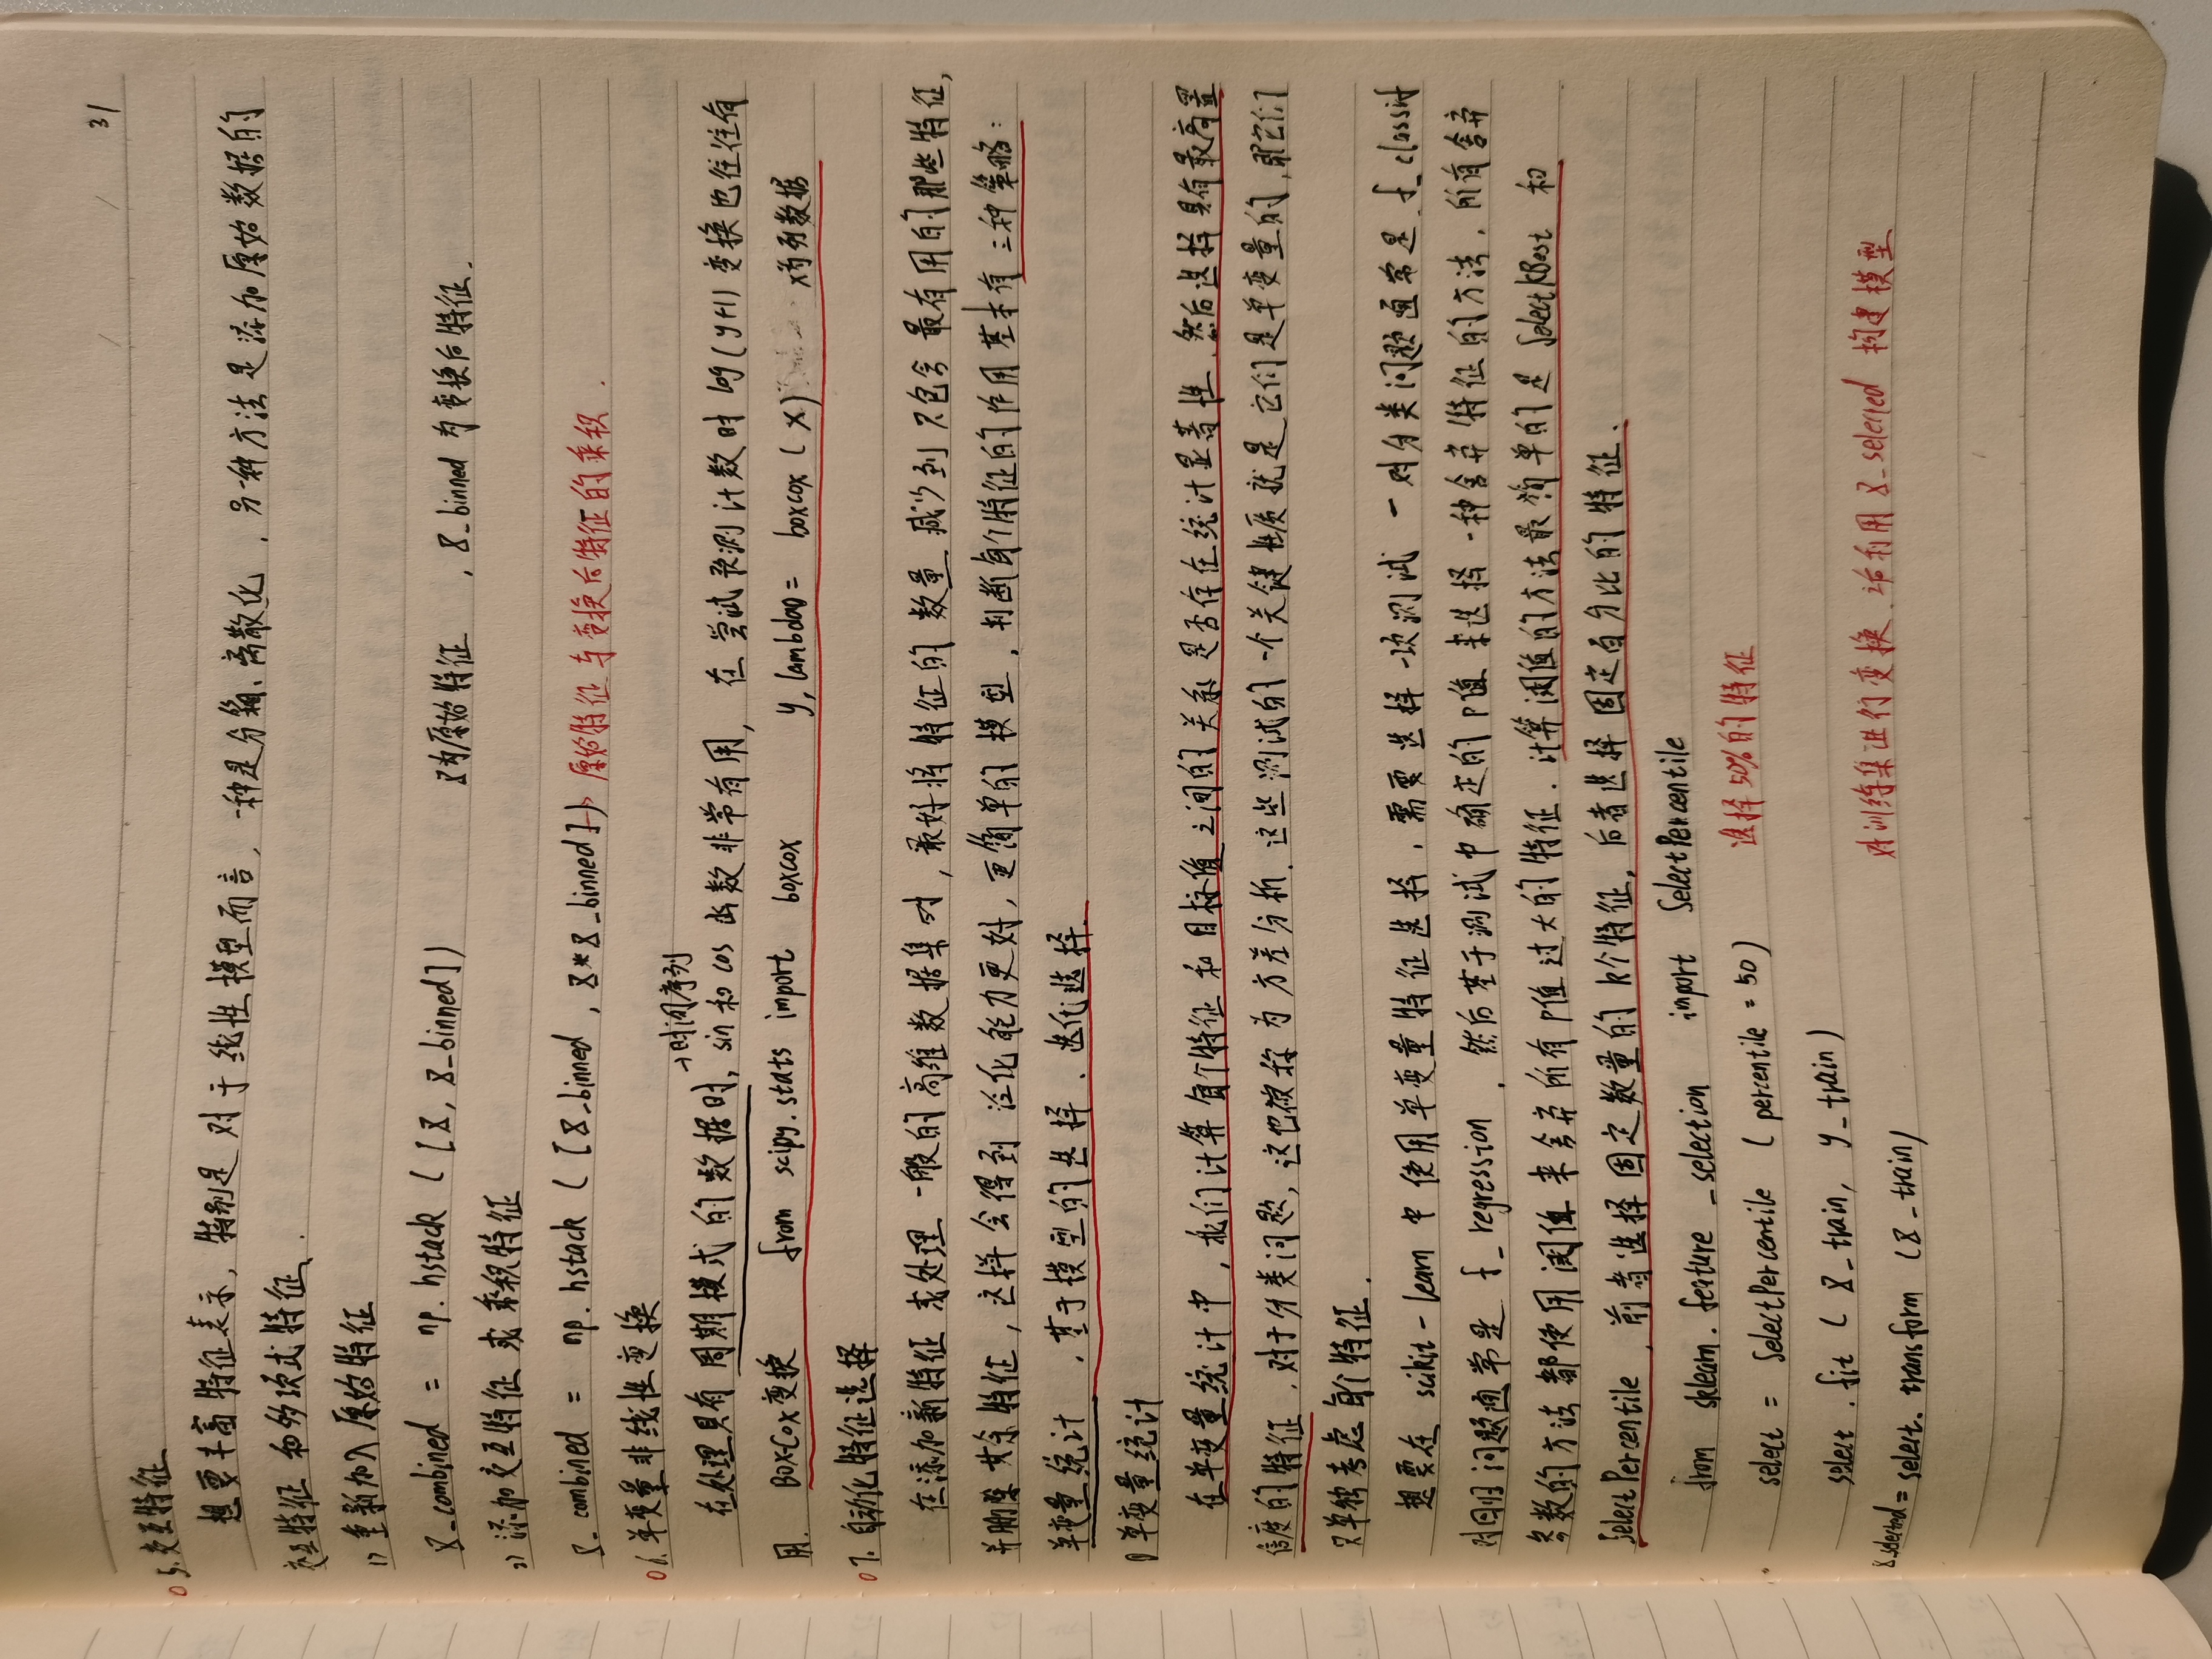 31
5.交互特征
想要丰富特征表示，特别是对于线性模型而言，一种是分箱、离散化，另一种方法是添加原始数据的
交互特征和多项式特征.
1) 重新加入原始特征
X_combined = np.hstack([X, X_binned]) X为原始特征，X_binned为变换后特征.
2) 添加交互特征或乘积特征
X_combined = np.hstack([X_binned, X*X_binned]) → 原始特征与变换后特征的乘积.
6.单变量非线性变换
→时间序列
在处理具有周期模式的数据时，sin和cos函数非常有用，在尝试预测计数时log(y+1)变换也往往有
用. Box-Cox变换 from scipy.stats import boxcox y, lambda0 = boxcox(x) x为列数据
7.自动化特征选择
在添加新特征或处理一般的高维数据集时，最好将特征的数量减少到只包含最有用的那些特征，
并删除其余特征，这样会得到泛化能力更好，更简单的模型，判断每个特征的作用基本有三种策略：
单变量统计，基于模型的选择、迭代选择.
1) 单变量统计
在单变量统计中，我们计算每个特征和目标值之间的关系是否存在统计显著性，然后选择具有最高置
信度的特征，对于分类问题，这也被称为方差分析，这些测试的一个关键性质就是它们是单变量的，即它们
只单独考虑每个特征.
想要在scikit-learn中使用单变量特征选择，需要选择一项测试——对分类问题通常是f_classif
对回归问题通常是f_regression，然后基于测试中确定的p值来选择一种舍弃特征的方法，所有舍弃
参数的方法都使用阈值来舍弃所有p值过大的特征.计算阈值的方法最简单的是SelectKBest和
SelectPercentile，前者选择固定数量的k个特征，后者选择固定百分比的特征.
from sklearn.feature_selection import SelectPercentile
select = SelectPercentile (percentile = 50) 选择50%的特征
select.fit (X_train, y_train)
X_selected = select.transform (X_train) 对训练集进行变换，并利用X_selected构建模型